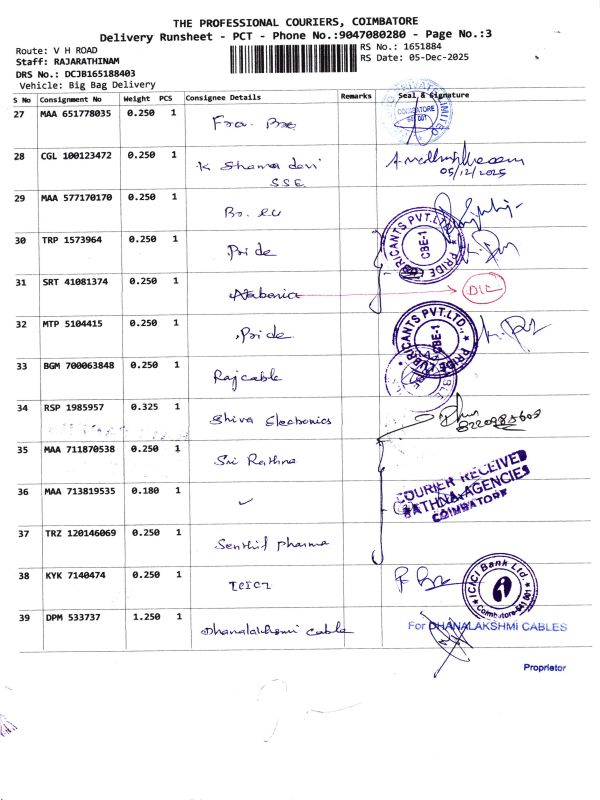 THE PROFESSIONAL COURIERS, COIMBATORE
Delivery Runsheet - PCT - Phone No.:9047080280 - Page No.:3
Route: V H ROAD
RS No.: 1651884
Staff: RAJARATHINAM
RS Date: 05-Dec-2025
DRS No.: DCJB165188403
Vehicle: Big Bag Delivery
S No Consignment No Weight PCS Consignee Details Remarks Seal & Signature
27 MAA 651778035 0.250 1
COIMBATORE
28 CGL 100123472 0.250 1 K Shama devi
SSE
05/12/2025
29 MAA 577170170 0.250 1
30 TRP 1573964 0.250 1 Pride
PRIDE LUBRICANTS PVT.LTD., CBE-1
31 SRT 41081374 0.250 1
32 MTP 5104415 0.250 1 Pride
PRIDE LUBRICANTS PVT.LTD., CBE-1
33 BGM 700063848 0.250 1 Raj cable
34 RSP 1985957 0.325 1 Shiva Electronics
35 MAA 711870538 0.250 1 Sri Rathna
36 MAA 713819535 0.180 1 ✓
COURIER RECEIVED
RATHNA AGENCIES
COIMBATORE
37 TRZ 120146069 0.250 1 Senthil pharma
38 KYK 7140474 0.250 1 ICICI
ICICI Bank Ltd.
Coimbatore-641 001
39 DPM 533737 1.250 1 Dhanalakshmi cable
For DHANALAKSHMI CABLES
Proprietor